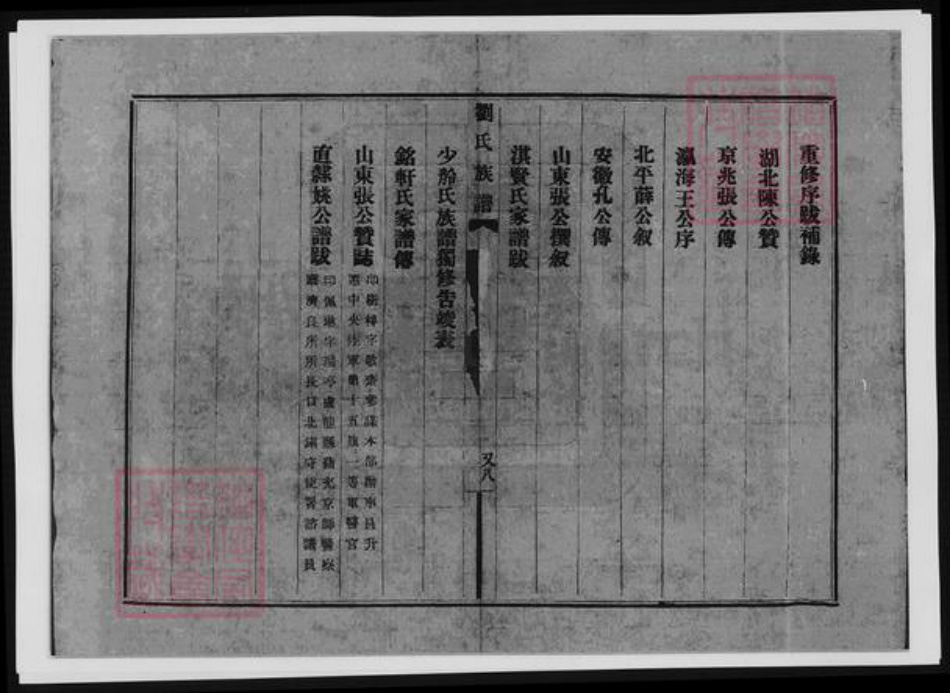 重修序跋補錄
湖北陳公贊
京兆張公傳
瀛海王公序
北平薛公叙
安徽孔公傳
山東張公撰叙
淇賢氏家譜跋
劉氏族譜
又八
少舲氏族譜獨修告竣表
銘軒氏家譜傳
山東張公贊誌
印樹 字敬齋 謀本部 員升
中央陸軍第十五旅一等軍醫官
直隸姚公譜跋
印佩 字 亭 縣 充京師警察
廳濟良所所長口北鎮守使署諮議員